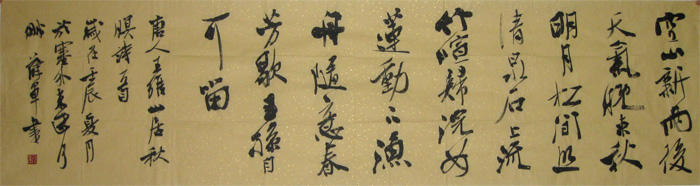 空山新雨後
天氣晚来秋
明月松間照
清泉石上流
竹喧歸浣女
蓮動下漁
舟隨意春
芳歇王孫自
可留
唐人王維山居秋
暝詩一首
歲在壬辰夏月
於塞外
書